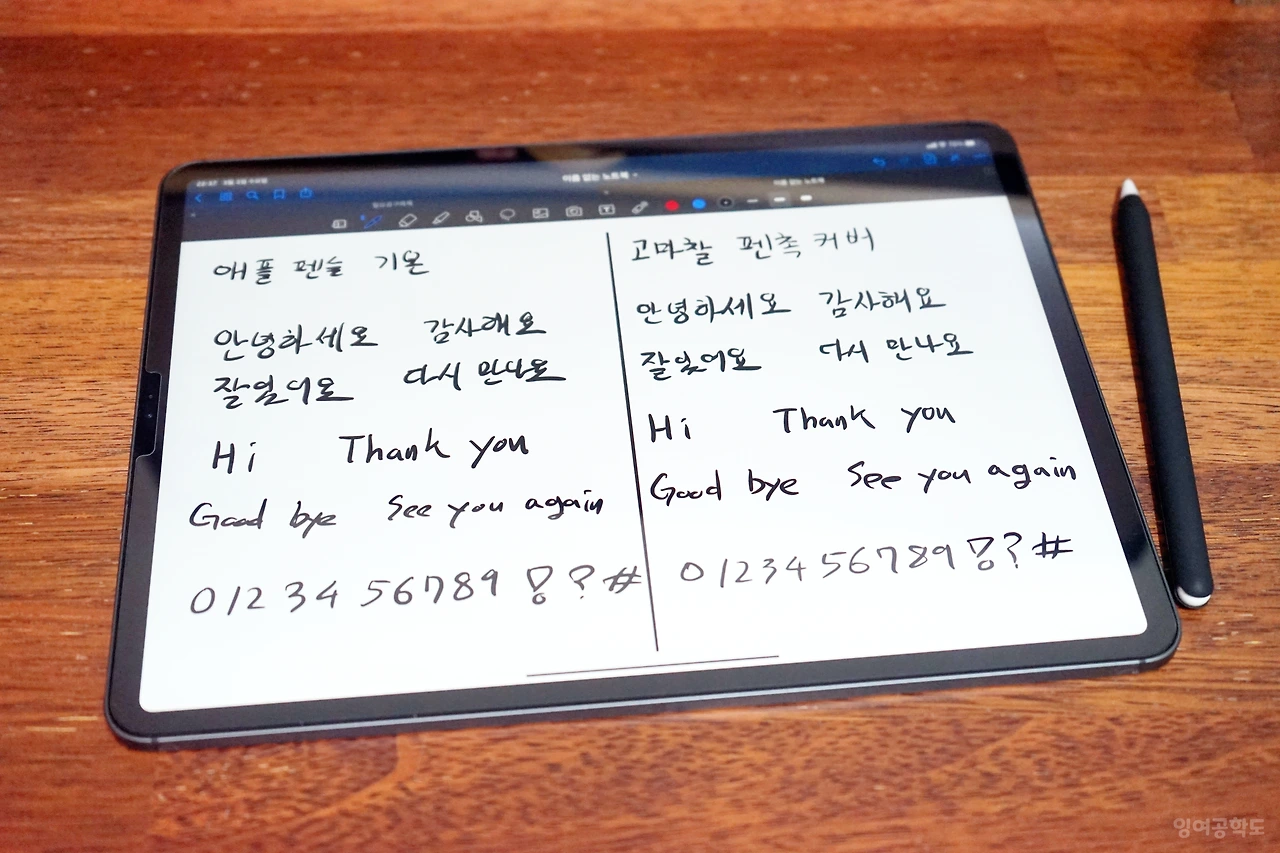 이름 없는 노트북
이름 없는 노트북
애플 펜슬 기본
안녕하세요 감사해요
잘있어요 다시 만나요
Hi Thank you
Good bye See you again
0 1 2 3 4 5 6 7 8 9 ! ? #
고마찰 펜촉 커버
안녕하세요 감사해요
잘있어요 다시 만나요
Hi Thank you
Good bye See you again
0 1 2 3 4 5 6 7 8 9 ! ? #
잉여공학도